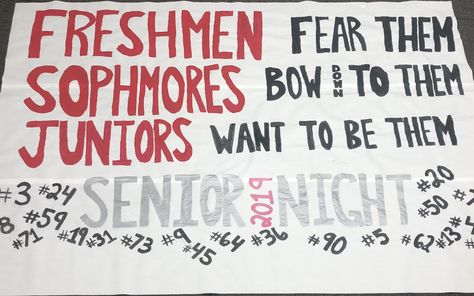 FRESHMEN FEAR THEM
SOPHMORES BOW DOWN TO THEM
JUNIORS WANT TO BE THEM
SENIOR 2019 NIGHT
#3 #24 #20
8 #59 #50
#71 #19 #31 #73 #9 #45 #64 #36 #90 #5 #62 #13